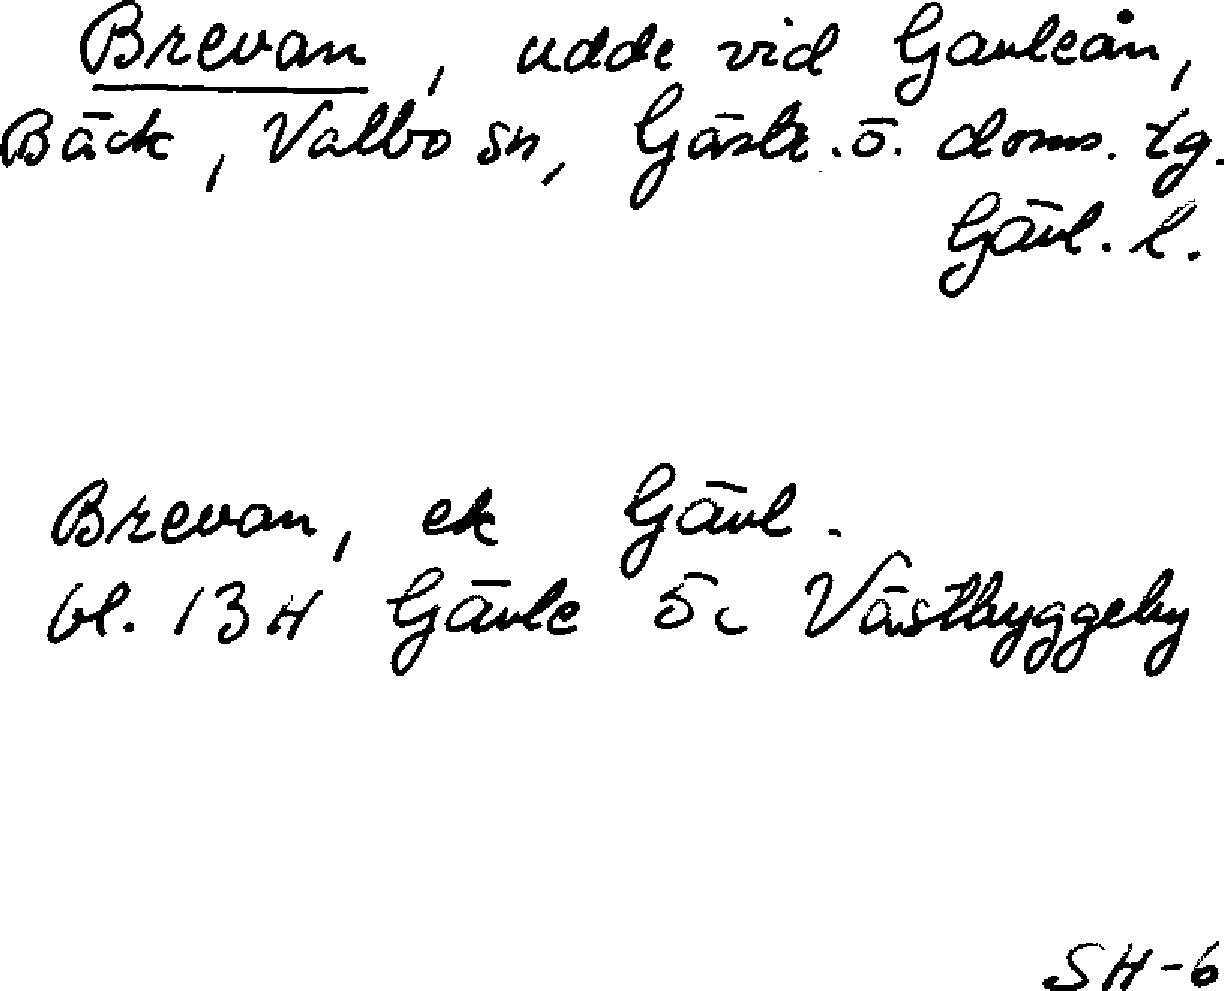 Brevan, udde vid Gavleån,
Bäck, Valbo sn, Gästr. ö. doms. tg.
Gävl. l.
Brevan, ek Gävl.
bl. 13H Gävle 5c Västbyggeby
SH-6